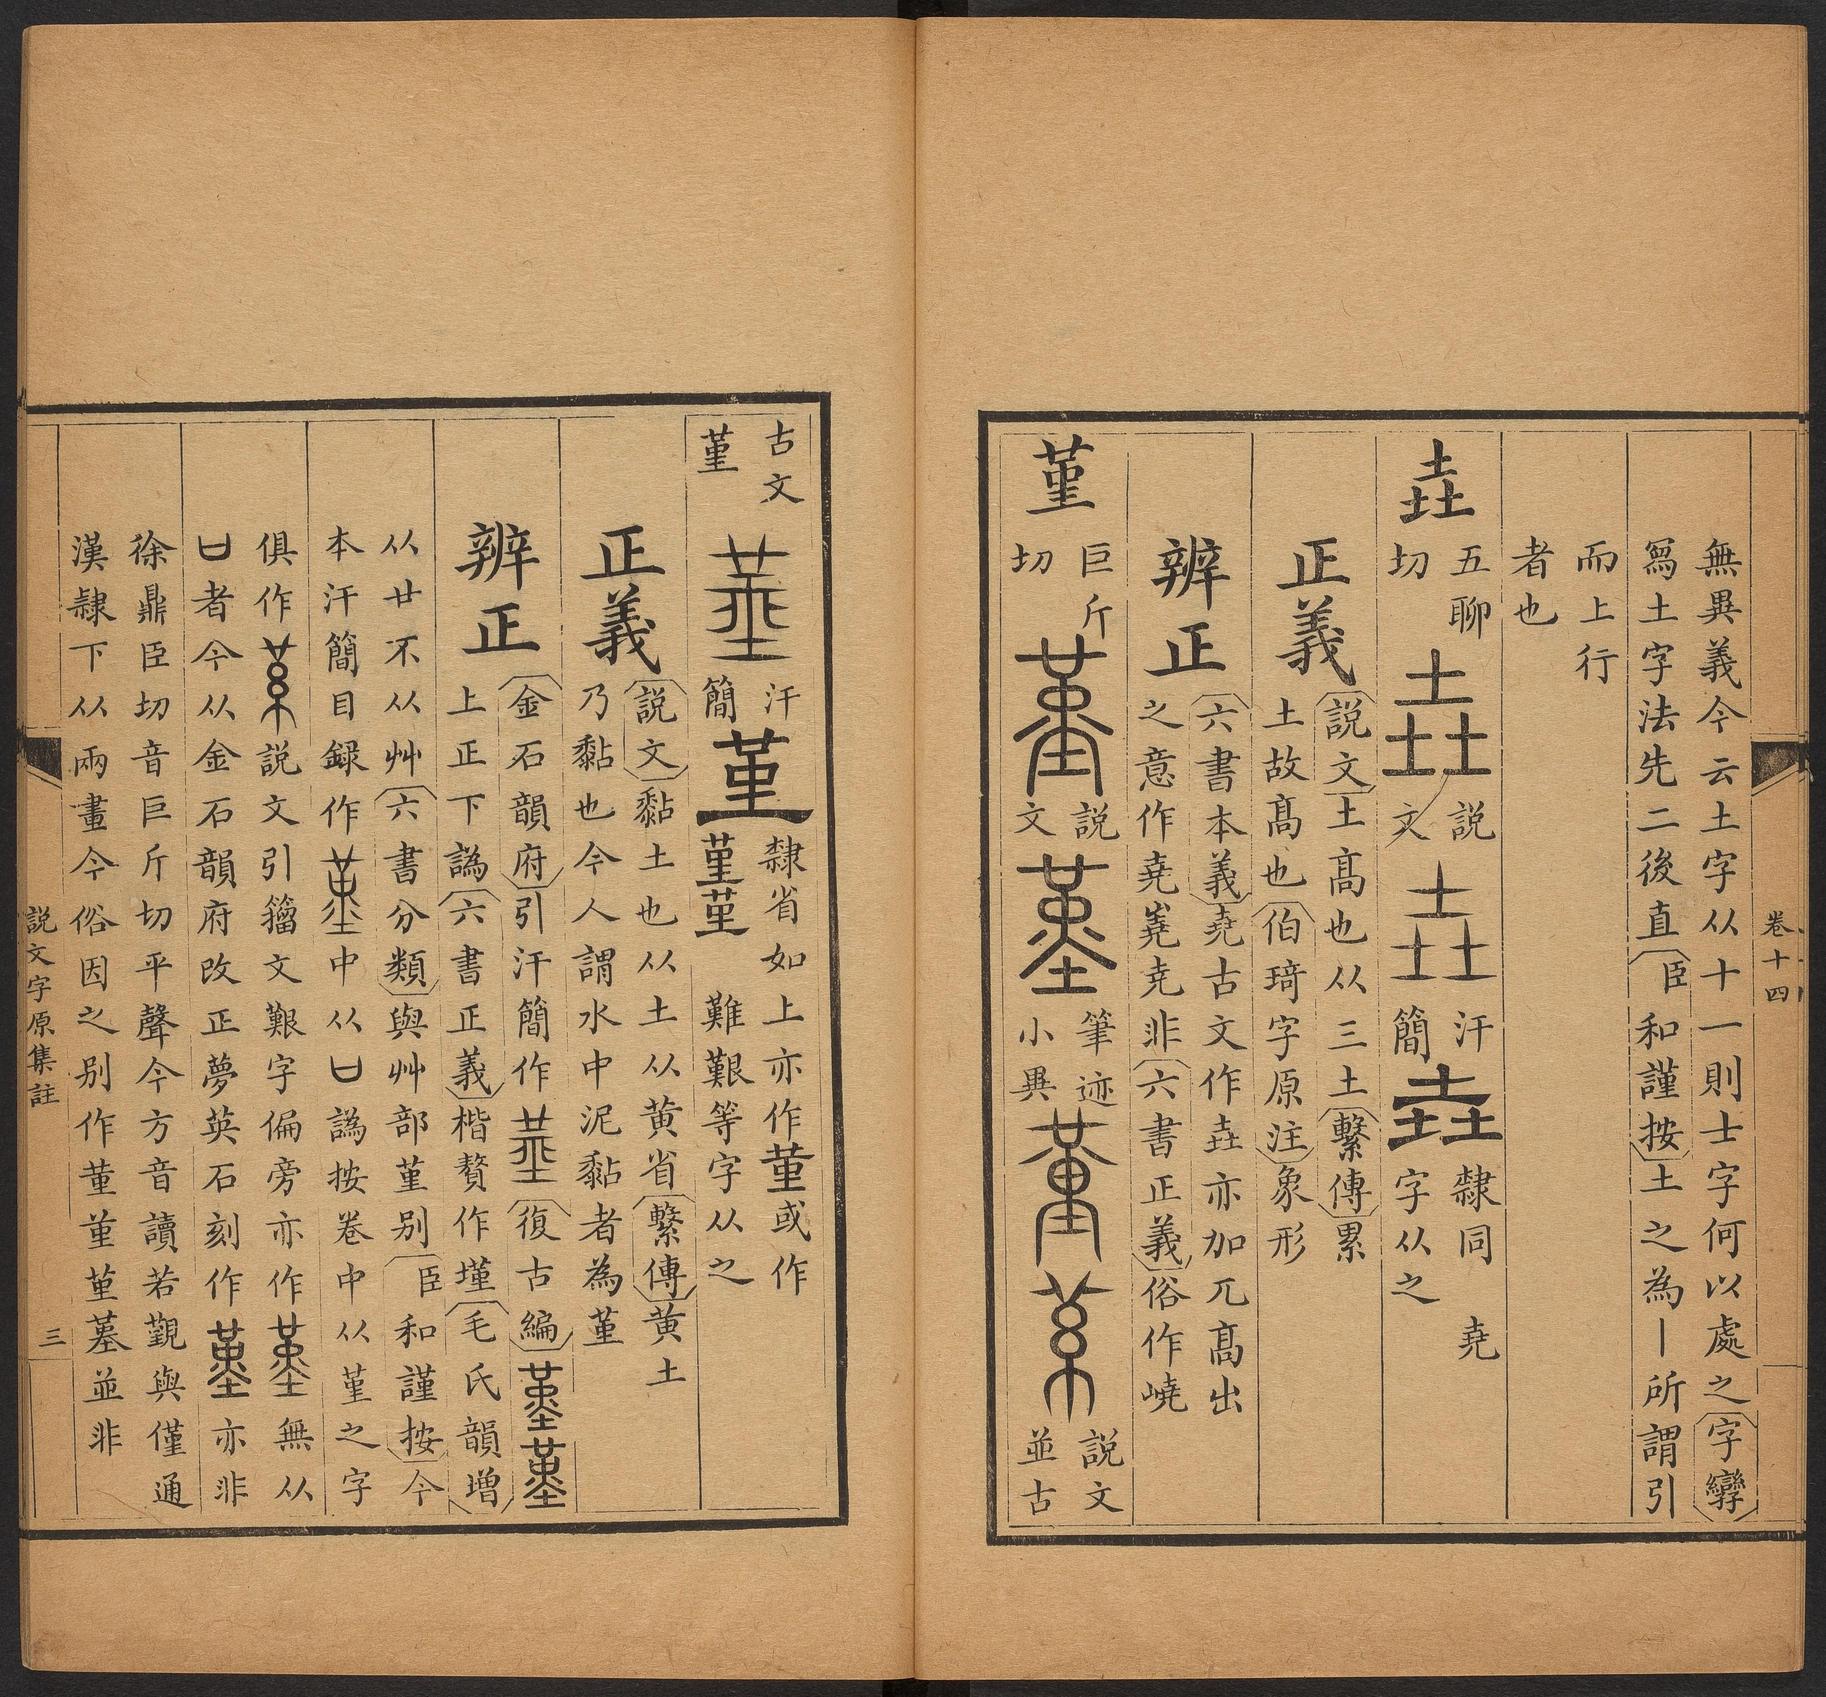 卷十四
無異義今云土字从十一則士字何以處之字孿
寫土字法先二後直臣和謹按土之為丨所謂引
而上行
者也
垚
五聊
切
説
文
汗
簡
垚
隸同 堯
字从之
正義
説文土高也从三土繫傳累
土故髙也伯琦字原注象形
辨正
六書本義堯古文作垚亦加兀髙出
之意作堯嶤尭非六書正義俗作嶢
堇
巨斤
切
説
文
筆迹
小異
説文
並古
古文
堇
汗
簡
堇
隸省如上亦作董或作
難艱等字从之
正義
説文黏土也从土从黄省繫傳黄土
乃黏也今人謂水中泥黏者為堇
辨正
金石韻府引汗簡作 復古編
上正下譌六書正義楷贅作墐毛氏韻増
从廿不从艸六書分類與艸部堇别臣和謹按今
本汗簡目録作 中从凵譌按卷中从堇之字
俱作 説文引籀文艱字偏旁亦作 無从
凵者今从金石韻府改正夢英石刻作 亦非
徐鼎臣切音巨斤切平聲今方音讀若觐與僅通
漢隷下从兩畫今俗因之别作董堇墓並非
説文字原集註
三